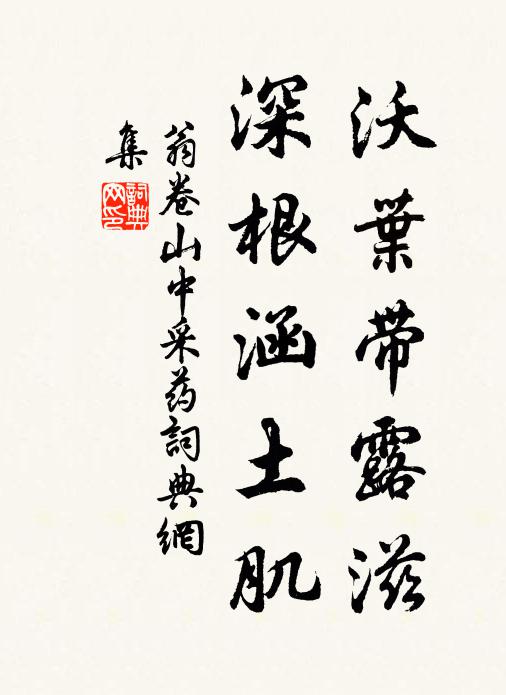 沃葉带露滋
深根涵土肌
翁卷山中采药詞典網
集
詞典网印